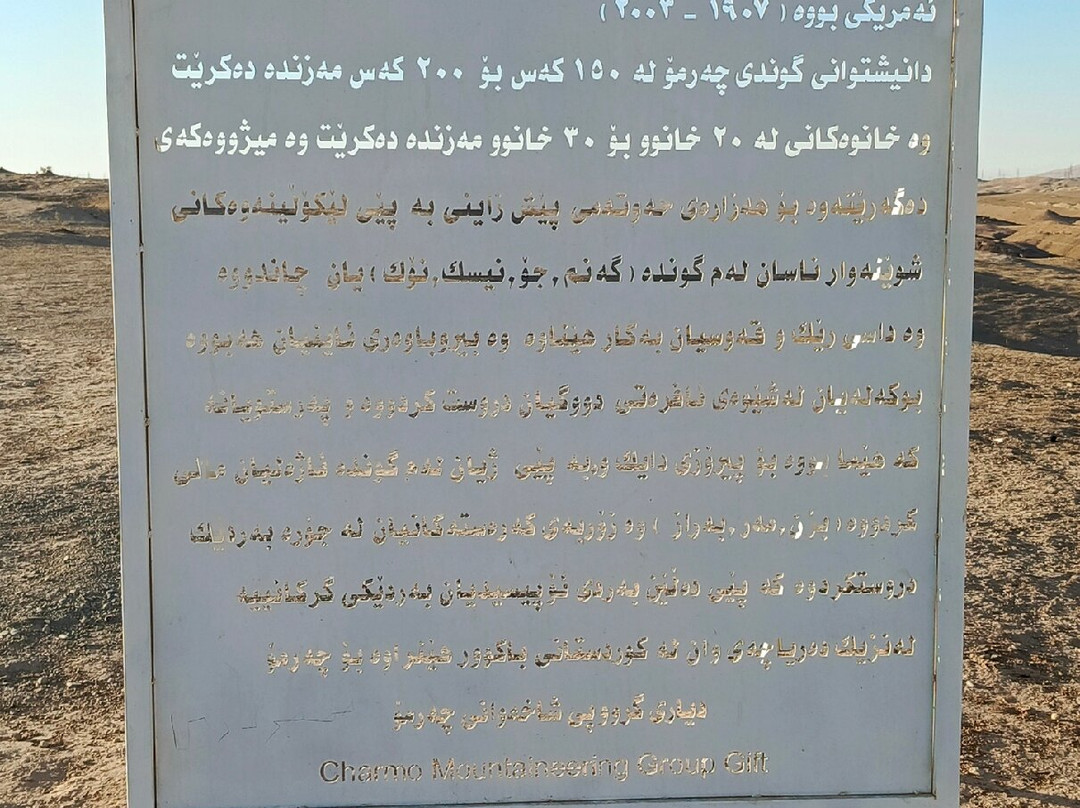 ئەمریکی بووە ( ١٩٠٧ - ٢٠٠٣ )
دانیشتوانی گوندی چەرمۆ لە ١٥٠ کەس بۆ ٢٠٠ کەس مەزندە دەکرێت
وە خانوەکانی لە ٢٠ خانوو بۆ ٣٠ خانوو مەزندە دەکرێت وە میژووەکەی
دەگەرێتەوە بۆ هەزارەی حەوتەمی پێش زاینی بە پێی لێکۆڵینەوەکانی
شوێنەوار ناسان لەم گوندە ( گەنم , جۆ , نیسك , نۆك ) یان چاندووە
وە داسی رێك و قەوسیان بەکار هێناوە وە بیروباوەری ئاینیان هەبووە
بوکەلەیان لەشێوەی ئافرەتی دووگیان دروست کردووە و پەرستویانە
کە هێما بووە بۆ پیرۆزی دایك وبە پێی ژیان لەم گوندە ئاژەڵیان مالی
کردووە ( بزن , مەر , بەراز ) وە زۆربەی کەرەستەکانیان لە جۆرە بەردیك
دروستکردوە کە پێی دەڵێن بەردی ئۆپیسیدیان بەردێکی گرکانییە
لەنزیك دەریاچەی وان لە کوردستانی باکوور هێنراوە بۆ چەرمۆ
دیاری گرووپی شاخەوانی چەرمۆ
Charmo Mountaineering Group Gift